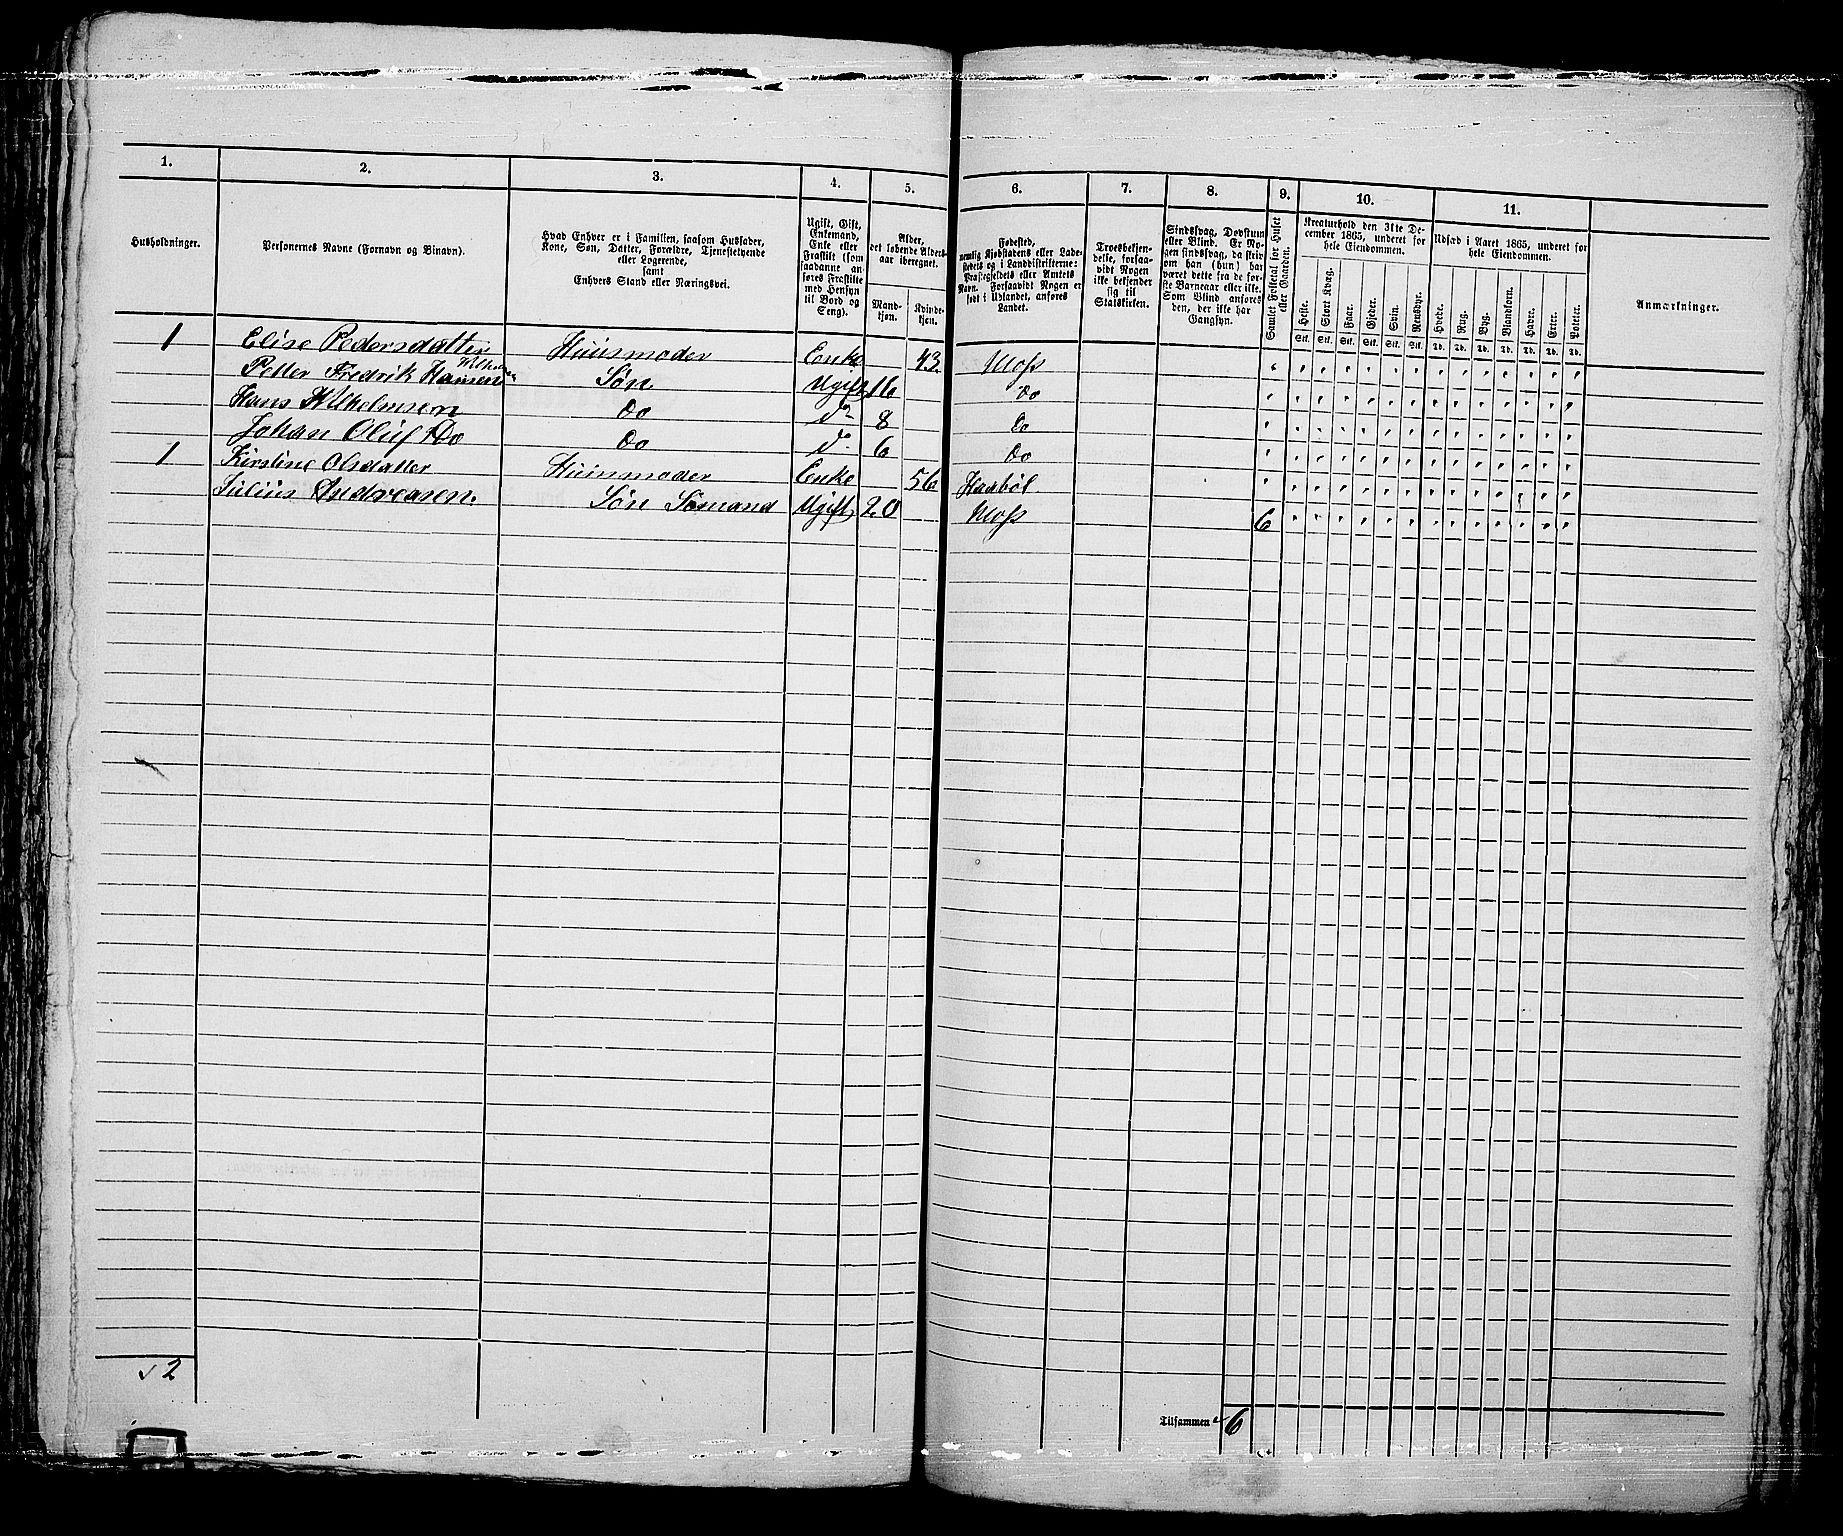 1. 2. 3. 4. 5. 6. 7. 8. 9. 10. 11.
Husholdninger.
Personernes Navne (Fornavn og Binavn).
Hvad Enhver er i Familien, saasom Husfader,
Kone, Søn, Datter, Forældre, Tjenestetyende
eller Logerende,
samt
Enhvers Stand eller Næringsvei.
Ugift, Gift,
Enkemand,
Enke eller
Fraskilt (som
saadanne an-
føres Fraskilte
med Hensyn
til Bord og
Seng).
Alder,
det løbende Alders-
aar iberegnet.
Mand-
kjøn.
Kvinde-
kjøn.
Fødested,
nemlig Kjøbstadens eller Lade-
stedets og i Landdistrikterne:
Præstegjeldets eller Amtets
Navn. Forsaavidt Nogen er
født i Udlandet, anføres
Landet.
Troesbekjen-
delse, forsaa-
vidt Nogen
ikke bekjender
sig til
Statskirken.
Sindssvag, Døvstum
eller Blind. Er No-
gen sindssvag, da skrives
om han (hun) har
været dette fra de før-
ste Barneaar eller ikke.
Som Blind anføres
den, der ikke har
Gangsyn.
Samlet Folketal for Huset
eller Gaarden.
Kreaturhold den 31te De-
cember 1865, underet for
hele Eiendommen.
Heste. Stort Kvæg. Faar. Gjeder. Svin. Rensdyr.
Stk. Stk. Stk. Stk. Stk. Stk.
Udsæd i Aaret 1865, underet for
hele Eiendommen.
Hvede. Rug. Byg. Blandkorn. Havre. Erter. Poteter.
Td. Td. Td. Td. Td. Td. Td.
Anmærkninger.
1 Elise Pedersdatter Huusmoder Enke 43 Moss
Petter Fredrik Hansen Wilhelmsen Søn Ugift 16 Do
Hans Wilhelmsen Do do 8 Do
Johan Oluf Do Do do 6 Do
1 Kirstine Olsdatter Huusmoder Enke 56 Haabøl
Julius Andreasen. Søn Sømand Ugift 20 Moss 6
2
Tilsammen 6